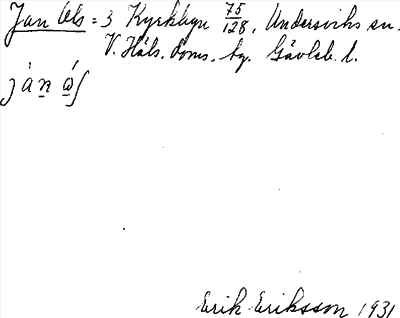 Jan Ols = 3 Kyrkbyn 75/128, Undersviks sn.
V. Häls. doms. hg. Gävleb. l.
jȧn ɷ́ʃ
Erik Eriksson 1931